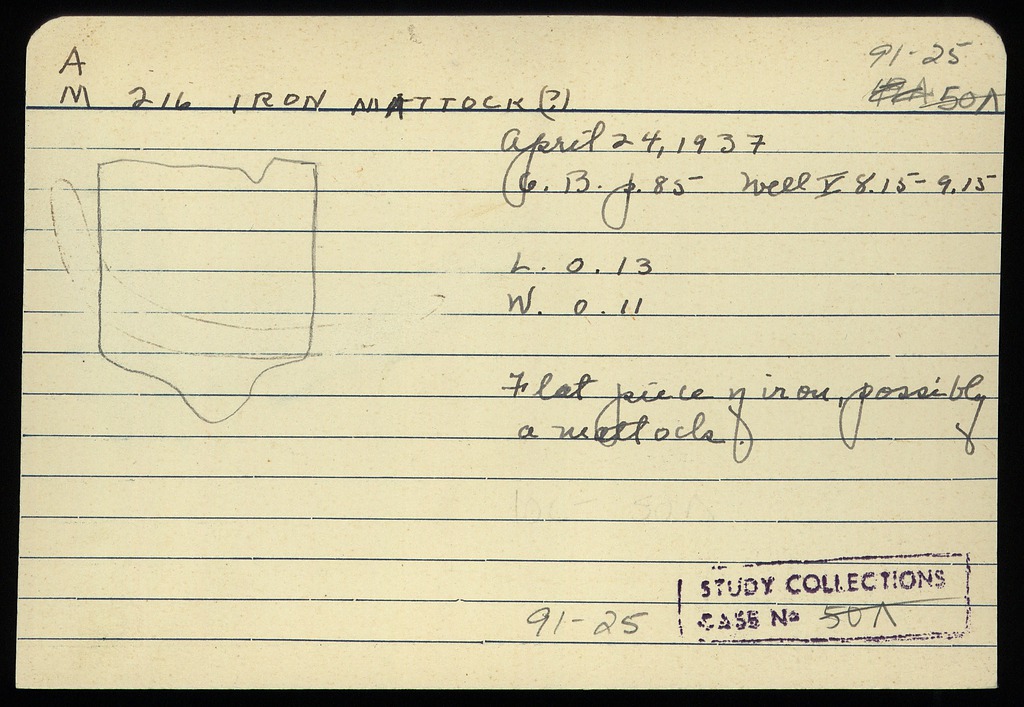 A
91-25
M 216 IRON MATTOCK (?)
50Λ
April 24, 1937
G. B. p. 85 Well V 8.15-9.15
L. 0.13
W. 0.11
Flat piece of iron, possibly
a mattock.
STUDY COLLECTIONS
CASE No 50Λ
91-25